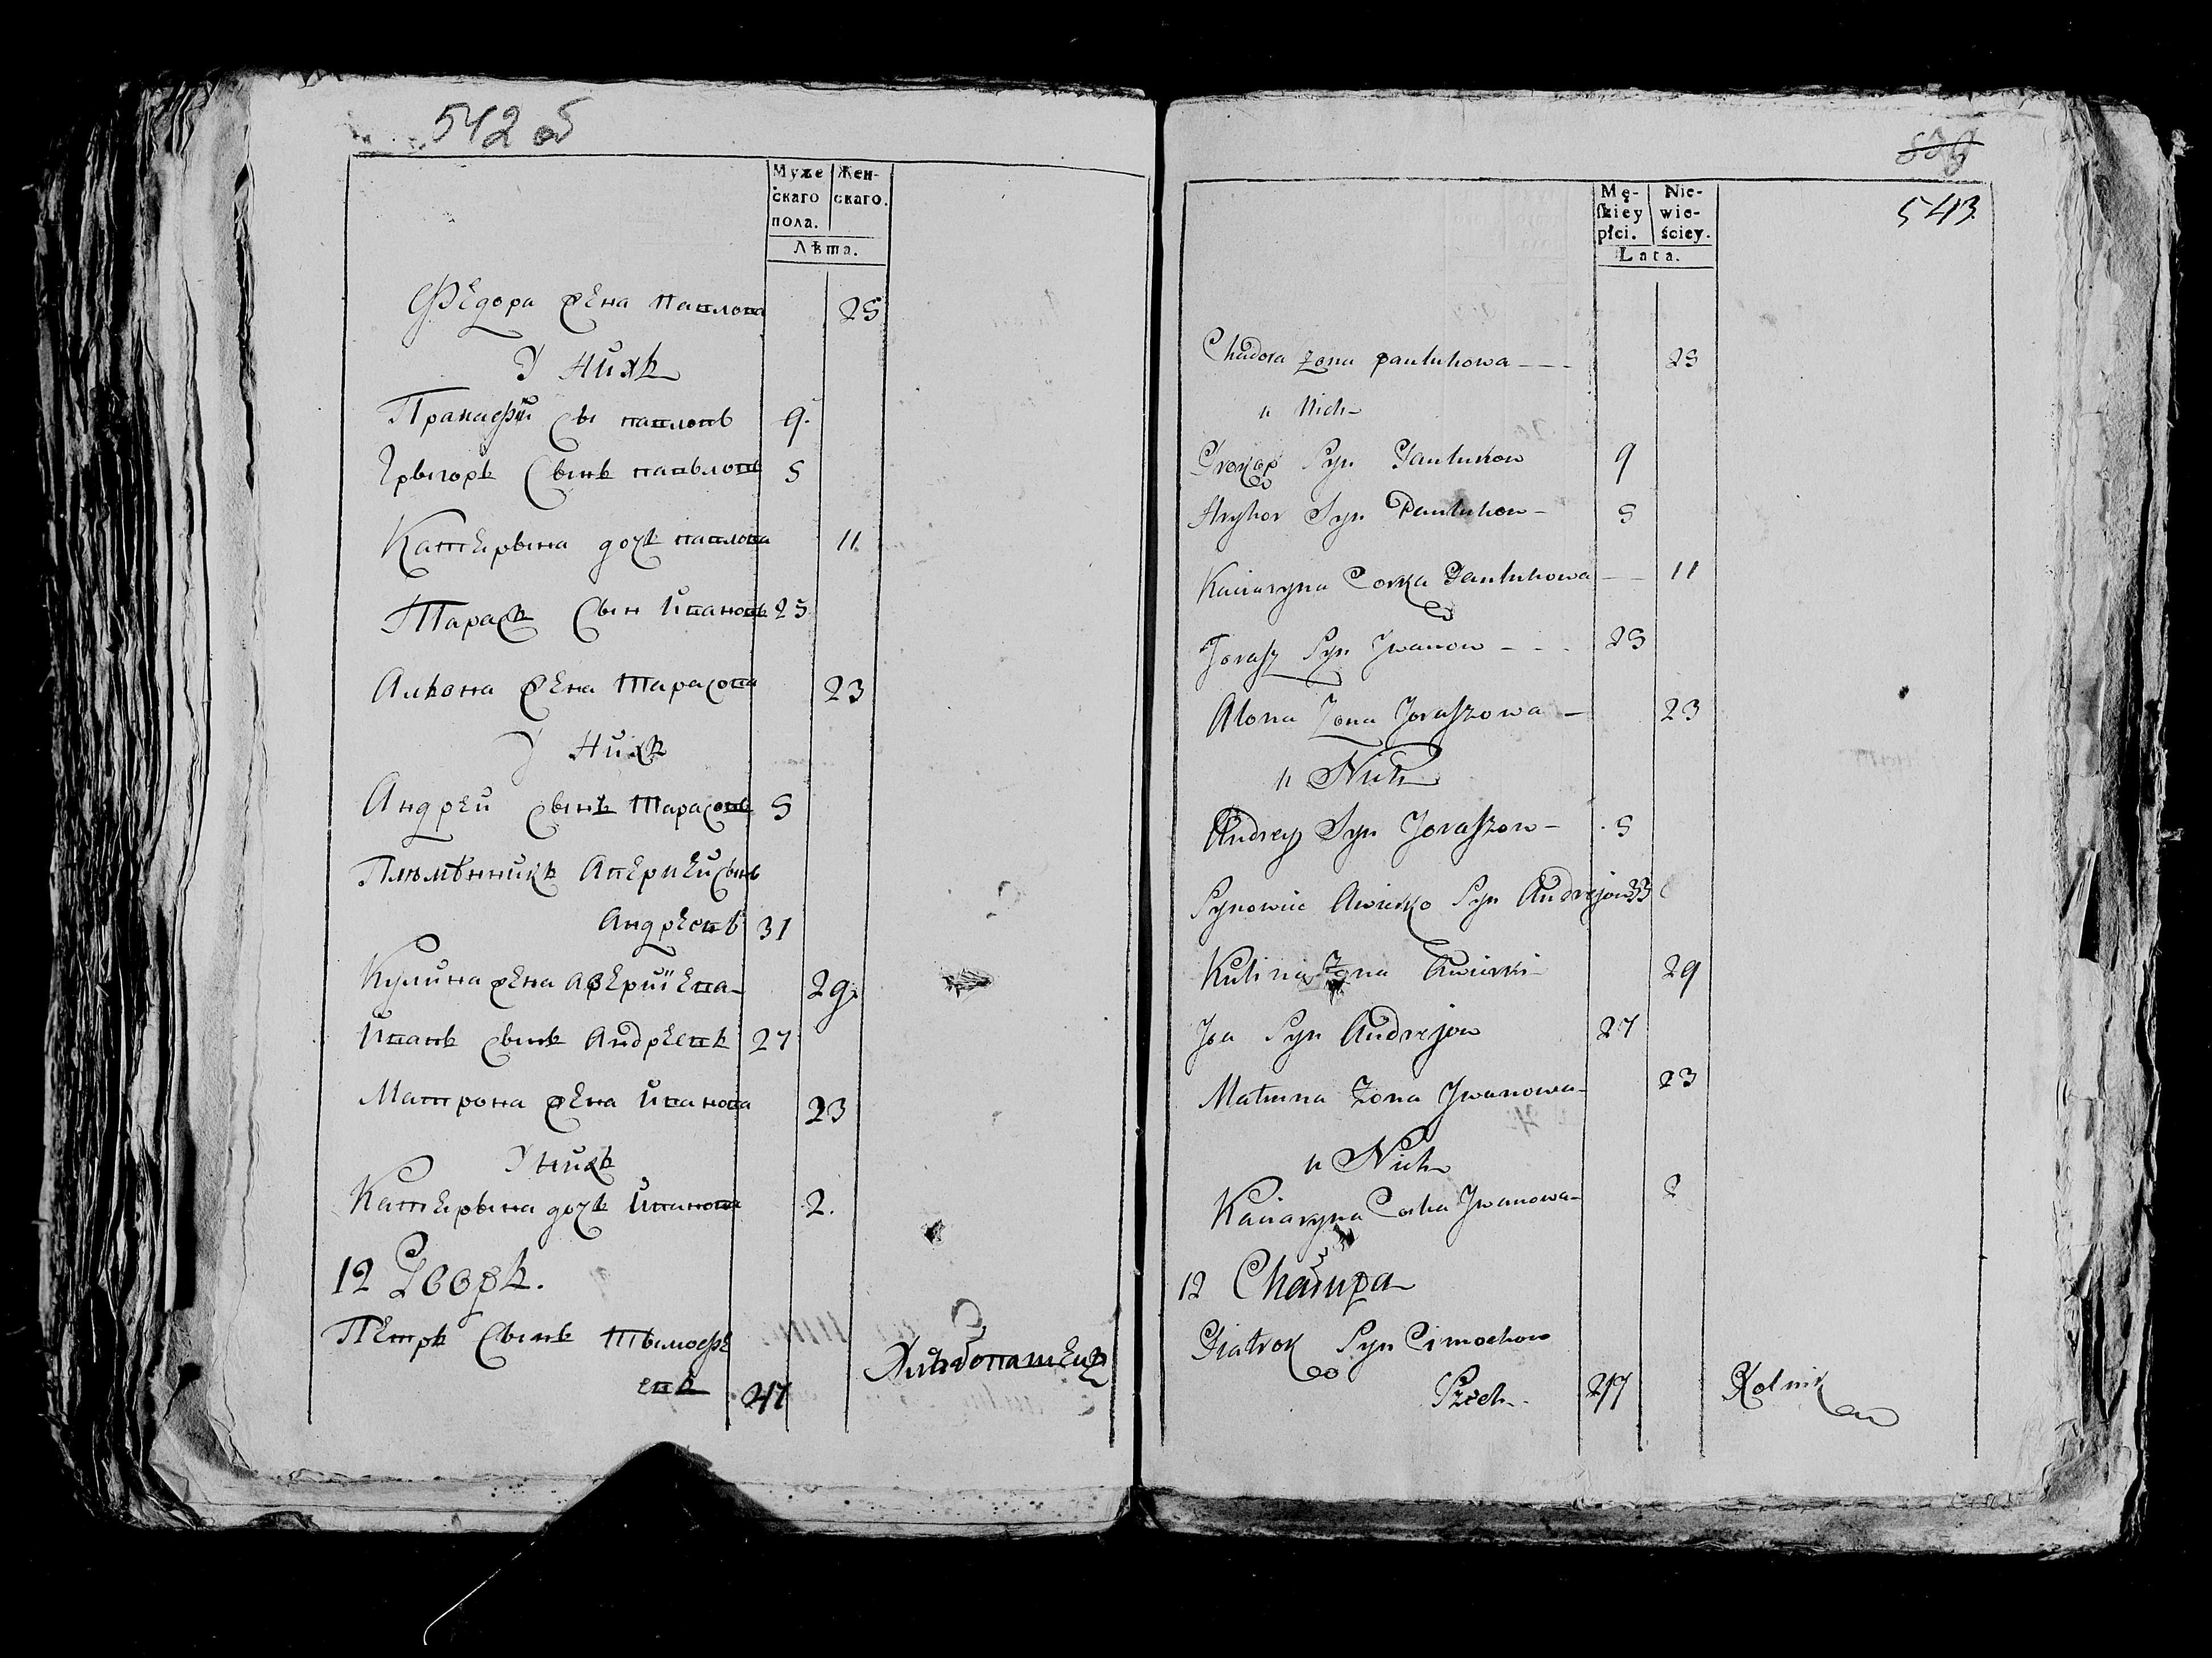 542 об
Муже
скаго
пола.
Жен-
скаго.
Лѣта.
Федора жена павлова 25
У нихъ
Пракофiй сы павловъ 9.
Грыгоръ сынъ павъловъ 5
Катерына дочъ павлова 11
Тарасъ сын Ивановъ 25
Алѣона жена Тарасова 23
У нихъ
Андрей сынъ Тарасовъ 5
Племѣнникъ Аверкей сынъ
Андреевъ 31
Кулина жена Аверкiева 29
Иванъ сынъ Андреевъ 27
Матрона жена Иванова 23
У нихъ
Катерына дочъ Иванова 2.
12 Дворъ.
Петръ сынъ Тымофе
евъ 47 Хлѣбопашецъ
839
543
Mę-
skiey
płci.
Nie-
wie-
ściey.
Lata.
Chadora żona Pautuhowa 25
u Nich
Prokop Syn Pautuhow 9
Hryhor Syn Pautuhow 5
Kaciaryna Corka Pautuhowa 11
Jarasz Syn Jwanow 25
Alona Zona Jaraszowa 23
u Nich
Andrey Syn Jaraszow 5
Synowiec Awierko Syn Andrejow 33
Kulina Zona Awierki 29
Jan Syn Andrejow 27
Matruna Zona Jwanowa 23
u Nich
Kaciaryna Corka Jwanowa 2
12 Chałupa
Piatrok Syn Cimochow
47 Rolnik